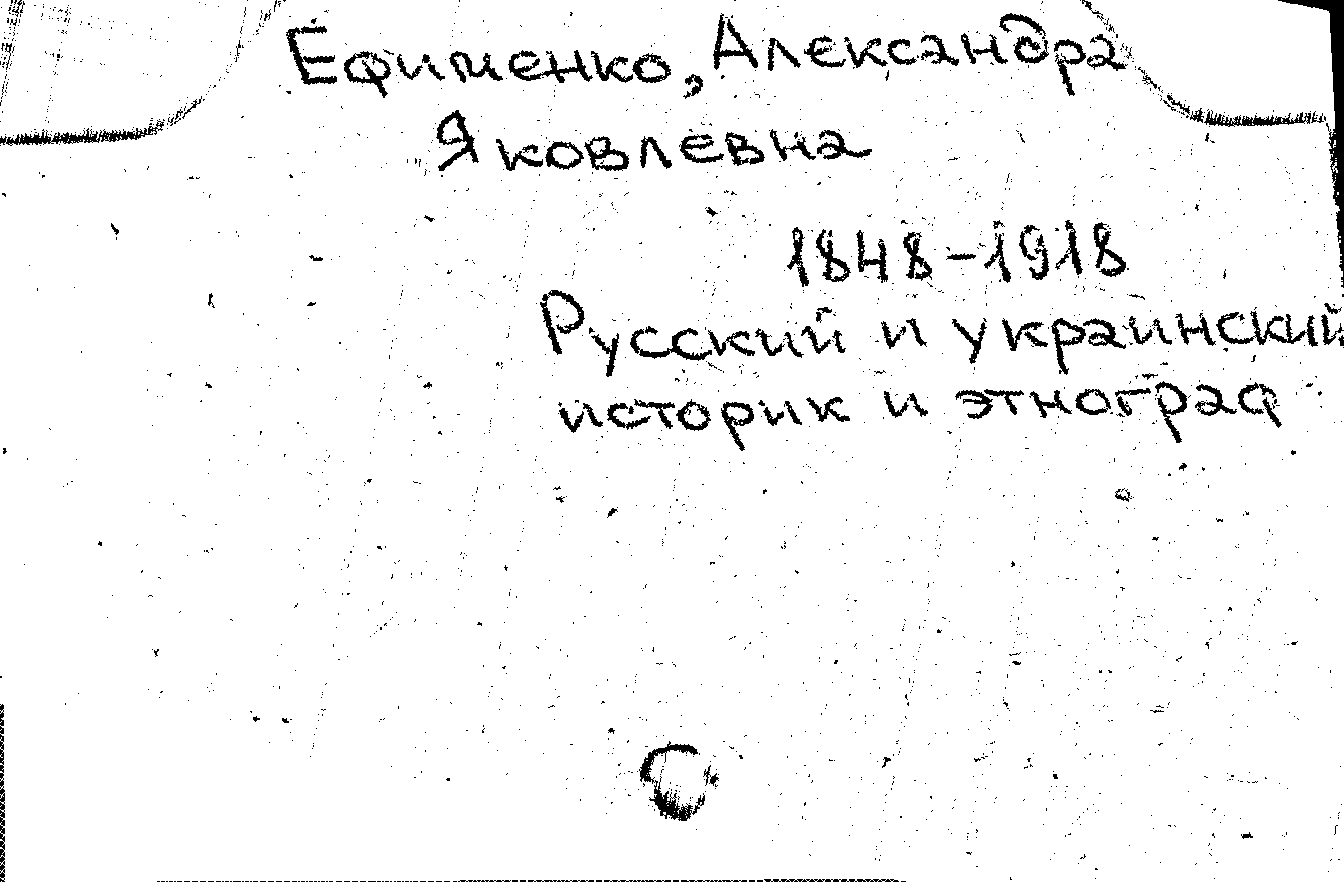 Ефименко, Александра
Яковлевна
1848-1918
Русский и украинский
историк и этнограф